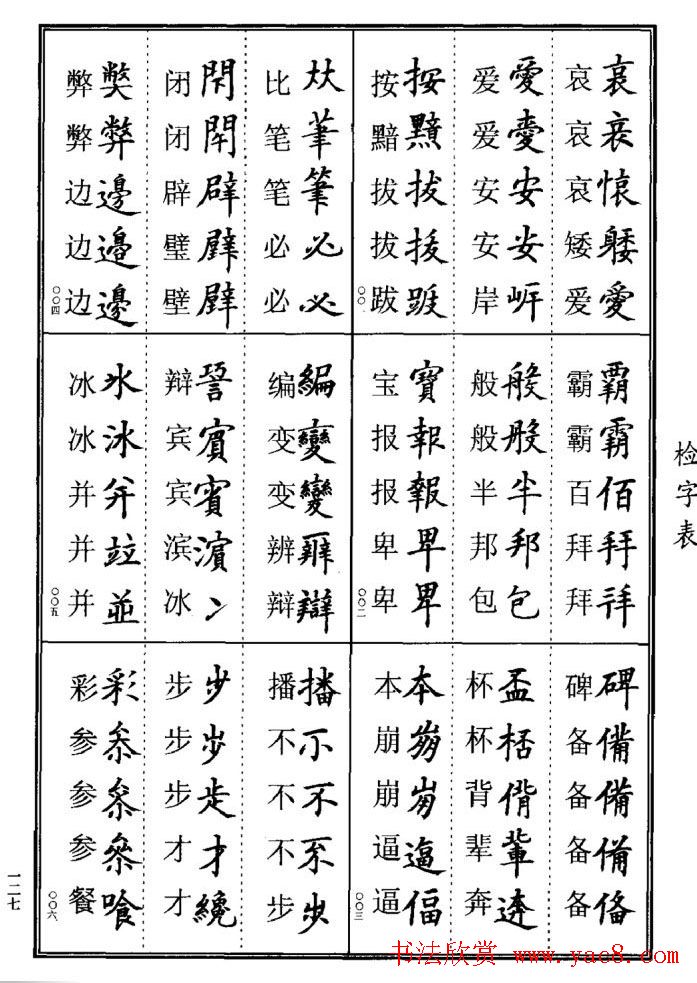 检字表
哀哀㦣躷愛
哀哀哀矮爱
愛愛安安岍
爱爱安安岸
按黯拔拔跋
按黯拔拔跋
〇〇一
覇霸佰拜拜
霸霸百拜拜
般般半邦包
般般半邦包
寶報報卑卑
宝报报卑卑
〇〇二
碑備備備俻
碑备备备备
盃桮偝輩逩
杯杯背辈奔
本崩崩逼偪
本崩崩逼逼
〇〇三
夶茟筆必必
比笔笔必必
閇閉辟璧壁
闭闭辟璧壁
獘弊邊邉邊
弊弊边边边
〇〇四
編變變辨辯
编变变辨辩
賔賓濵冫
辩宾宾滨冰
氷冰并竝並
冰冰并并并
〇〇五
播不不不步
播不不不步
步步步才纔
步步步才才
彩叅叅叅喰
彩参参参餐
〇〇六
一二七
书法欣赏 www.yac8.com